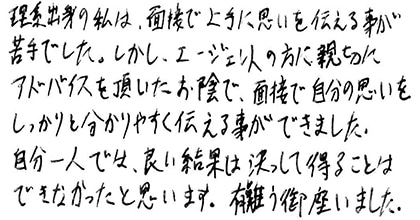 理系出身の私は、面接で上手に思いを伝える事が
苦手でした。しかし、エージェントの方に親切に
アドバイスを頂いたお陰で、面接で自分の思いを
しっかりと分かりやすく伝える事ができました。
自分一人では、良い結果は決して得ることは
できなかったと思います。有難う御座いました。